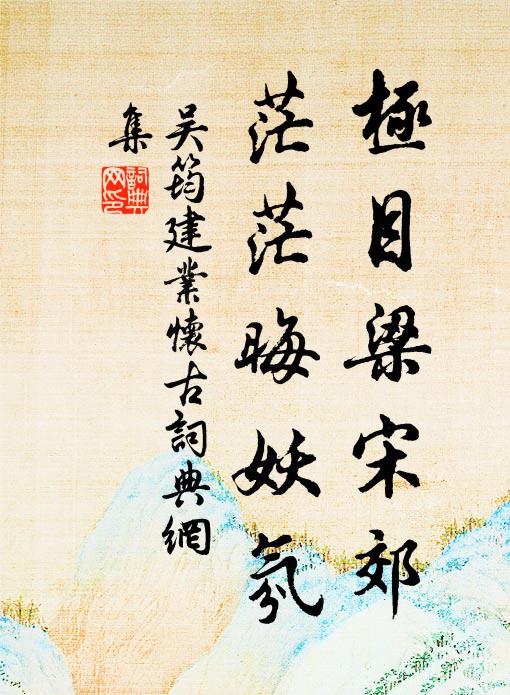 極目梁宋郊
茫茫晦妖氛
吳筠建業懷古詞典網
集
詞典
網印